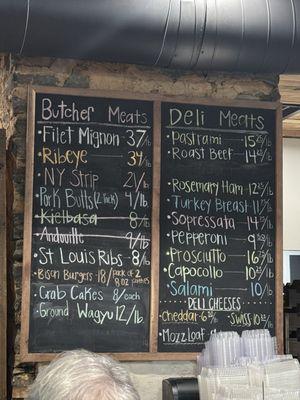 Butcher Meats
• Filet Mignon - 37/lb
• Ribeye 34/lb
• NY Strip 21/lb
• Pork Butts (2 inch) 4/lb
• Kielbasa 8/lb
• Andouille 9/lb
• St Louis Ribs - 8/lb
• Bison Burgers - 18/pack of 2
8oz patties
• Crab Cakes 8/each
• Ground Wagyu 12/lb
Deli Meats
• Pastrami - 15/lb
• Roast Beef - 14/lb
• Rosemary Ham - 12/lb
• Turkey Breast - 11/lb
• Sopressata - 14/lb
• Pepperoni - 9/lb
• Prosciutto - 16/lb
• Capocollo - 10/lb
• Salami 10/lb
DELI CHEESES
• Cheddar - 6 • Swiss 10
• Mozz Loaf